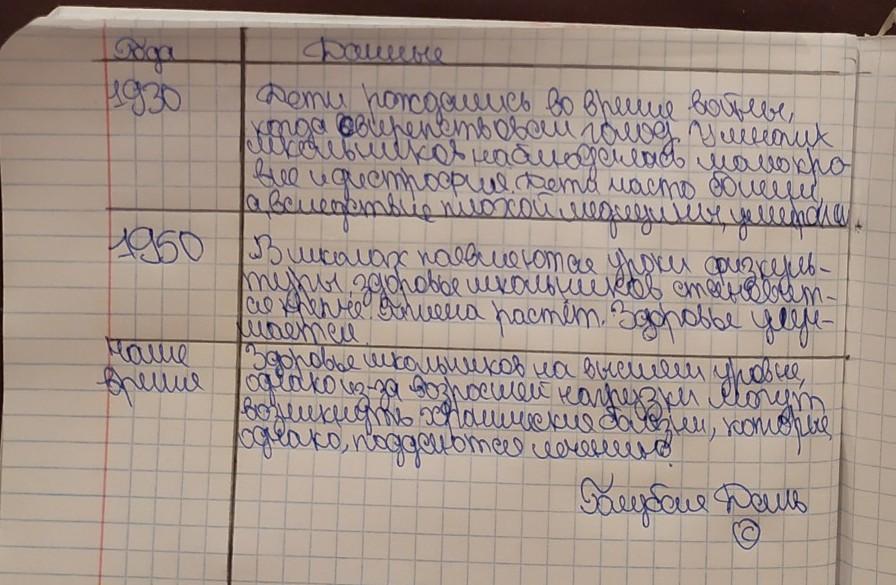 Года Данные
1930 Дети рождались во время войны,
когда свирепствовал голод. У многих
школьников наблюдалась малокро-
вие и дистрофия. Дети часто болели,
а вследствие плохой медицины, умирали.
1950 В школах появляются уроки физкуль-
туры, здоровье школьников становит-
ся крепче растёт. Здоровье улуч-
шается.
Наше Здоровье школьников на высшем уровне,
время однако из-за возросшей нагрузки могут
возникнуть хронические болезни, которые,
однако, поддаются лечению.
Голубая Даль
©